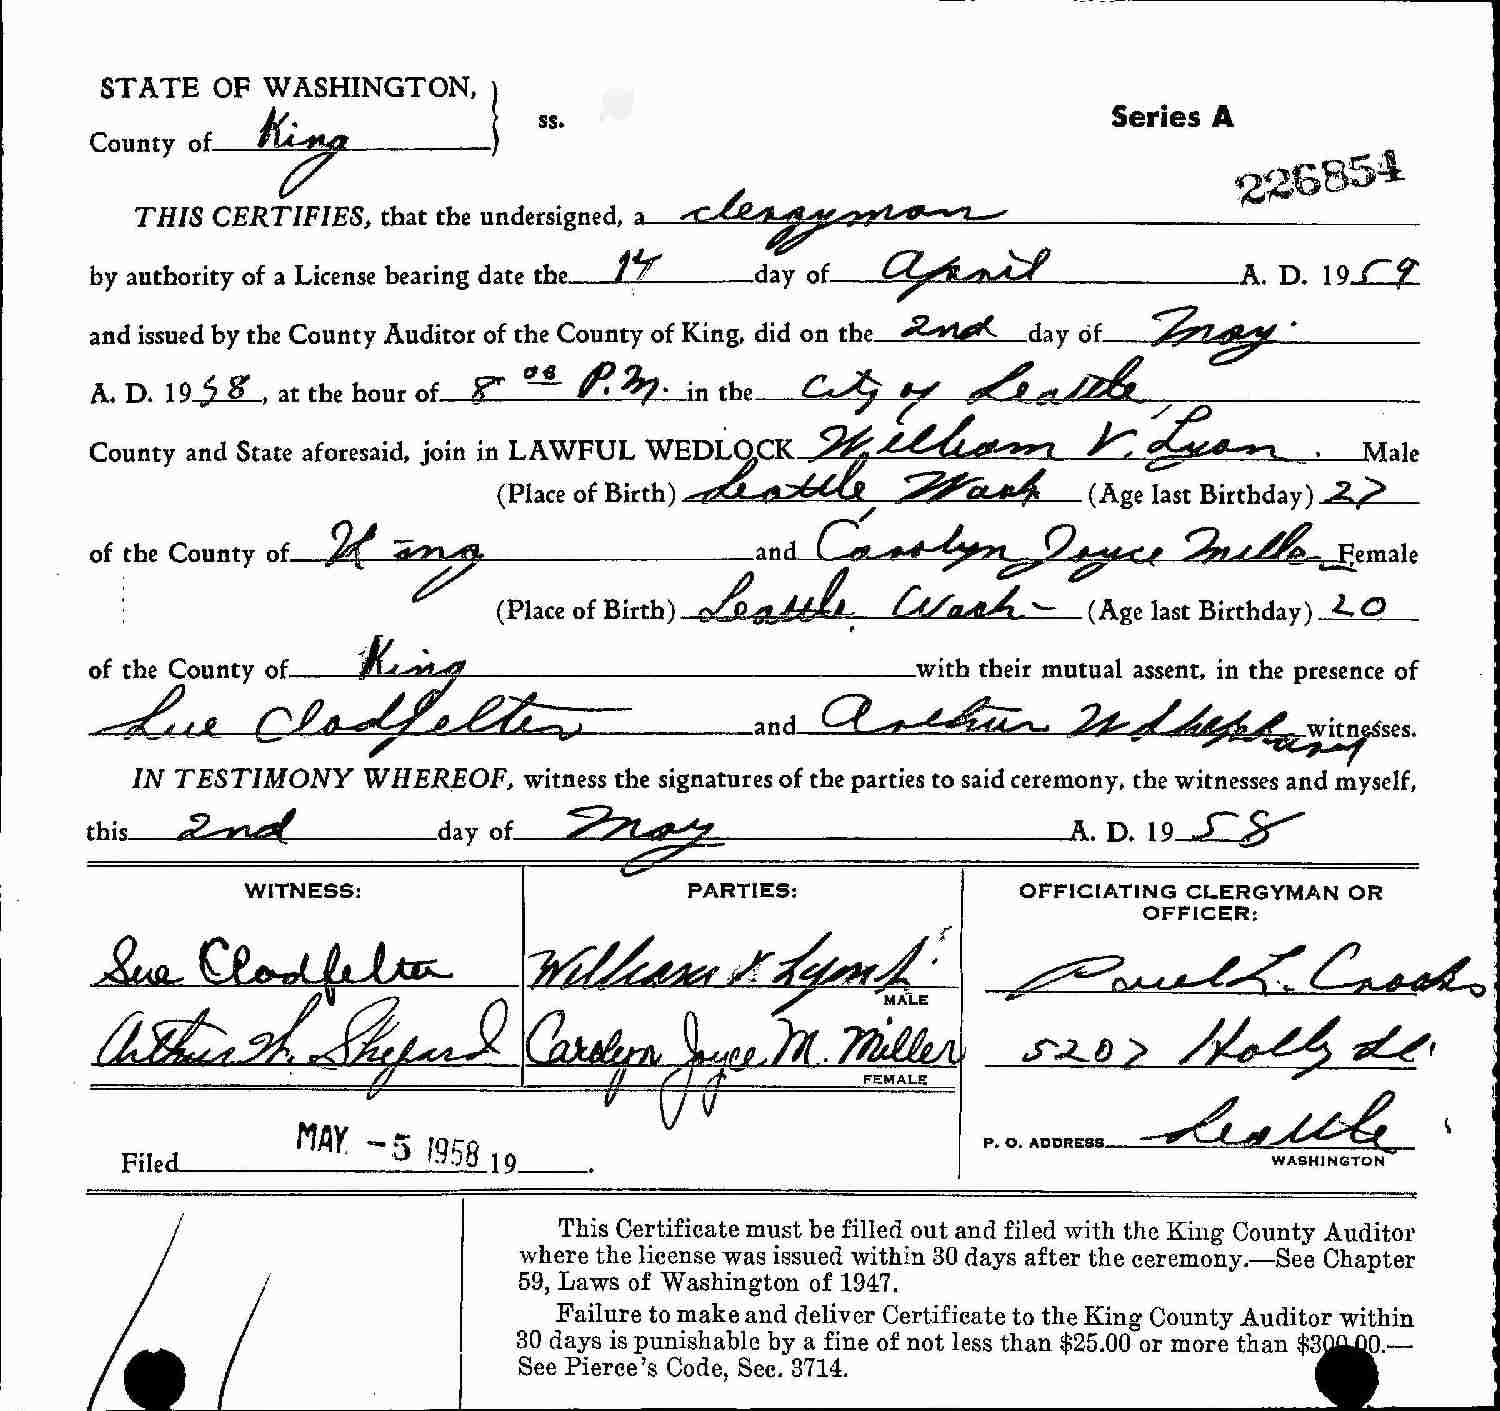 STATE OF WASHINGTON,
County of King ss.
Series A
226854
THIS CERTIFIES, that the undersigned, a clergyman
by authority of a License bearing date the 14 day of April A. D. 1959
and issued by the County Auditor of the County of King, did on the 2nd day of May
A. D. 1958, at the hour of 8 00 P.M. in the City of Seattle,
County and State aforesaid, join in LAWFUL WEDLOCK William V. Lyon Male
(Place of Birth) Seattle, Wash (Age last Birthday) 27
of the County of King and Carolyn Joyce Mills Female
(Place of Birth) Seattle, Wash- (Age last Birthday) 20
of the County of King with their mutual assent, in the presence of
Sue Clodfelter and Arthur W witnesses.
IN TESTIMONY WHEREOF, witness the signatures of the parties to said ceremony, the witnesses and myself,
this 2nd day of May A. D. 1958
WITNESS:
Sue Clodfelter
Arthur W. Shepard
PARTIES:
William V
MALE
Carolyn Joyce M. Miller
FEMALE
OFFICIATING CLERGYMAN OR
OFFICER:
Paul L. Crooks
5207 Holly St.
P. O. ADDRESS Seattle
WASHINGTON
Filed MAY -5 1958 19 .
This Certificate must be filled out and filed with the King County Auditor
where the license was issued within 30 days after the ceremony.—See Chapter
59, Laws of Washington of 1947.
Failure to make and deliver Certificate to the King County Auditor within
30 days is punishable by a fine of not less than $25.00 or more than $300.00.—
See Pierce's Code, Sec. 3714.